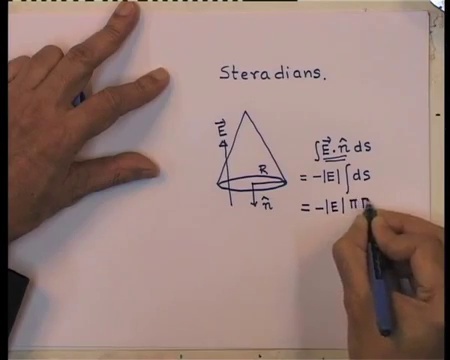 Steradians.
E⃗
R
n̂
∫E⃗ · n̂ ds
= -|E| ∫ds
= -|E| π